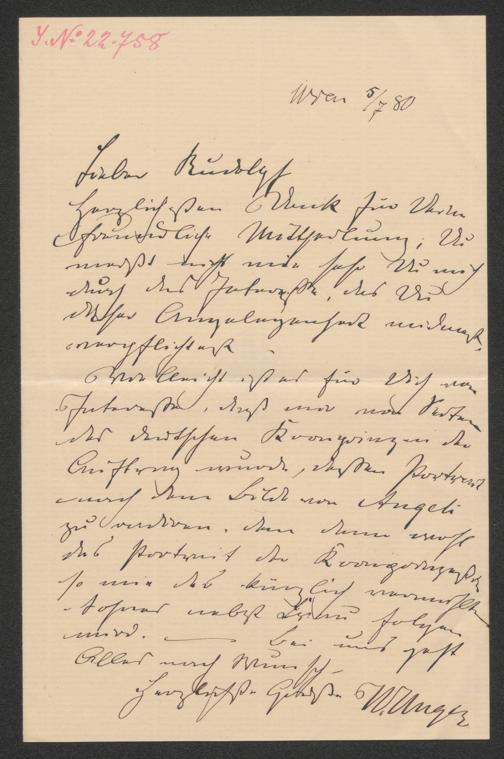 J. No 22.758
Wien 5/7 80
Lieber Rudolf
Herzlichsten Dank für Deine
freundliche Mittheilung; Du
weißt nicht wie sehr Du mich
durch das Interesse, das Du
dieser Angelegenheit widmest,
verpflichtest.
Vielleicht ist es für Dich von
Interesse, daß mir von Seiten
des deutschen Kronprinzen der
Auftrag wurde, dessen Portrait
nach dem Bilde von Angeli
zu radiren, dem dann wohl
das Portrait der Kronprinzessin
so wie des kürzlich vermählten
Sohnes nebst Frau folgen
wird. — Bei uns geht
Alles nach Wunsch.
Herzlichste Grüße W. Unger